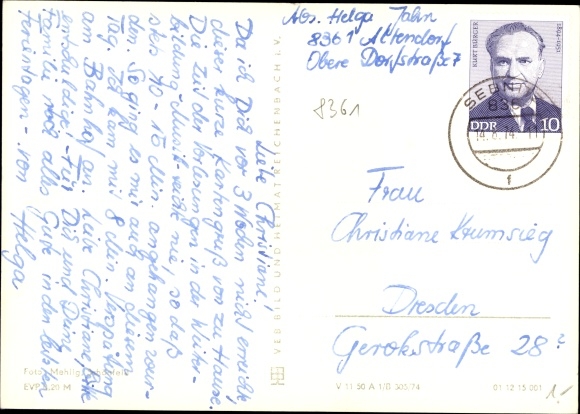 Abs. Helga Jahn
8361 Altendorf
Obere Dorfstraße 7
8361
KURT BÜRGER
1894-1951
DDR 10
SEBNITZ
836
14.8.74
f
Frau
Christiane Krumsieg
Dresden
Gerokstraße 28?
Liebe Christiane!
Da ich Dich vor 3 Wochen nicht erreichte,
dieser kurze Kartengruß von zu Hause.
Die Zeit der Vorlesungen in der Weiter-
bildung Musik reicht nie, so daß
stets 10-15 Min. angehangen wur-
den. So ging es mir auch an diesem
Tag. Ich kam mit 8 Min. Verspätung
am Bahnhof an. Liebe Christiane, bitte
entschuldige - für Dich und Deine
Familie noch alles Gute in den letzten
Ferientagen - von
Helga
VEB BILD UND HEIMAT REICHENBACH i. V.
Foto:
EVP 0,20 M
V 11 50 A 1/B 305/74
01 12 15 001
1.-